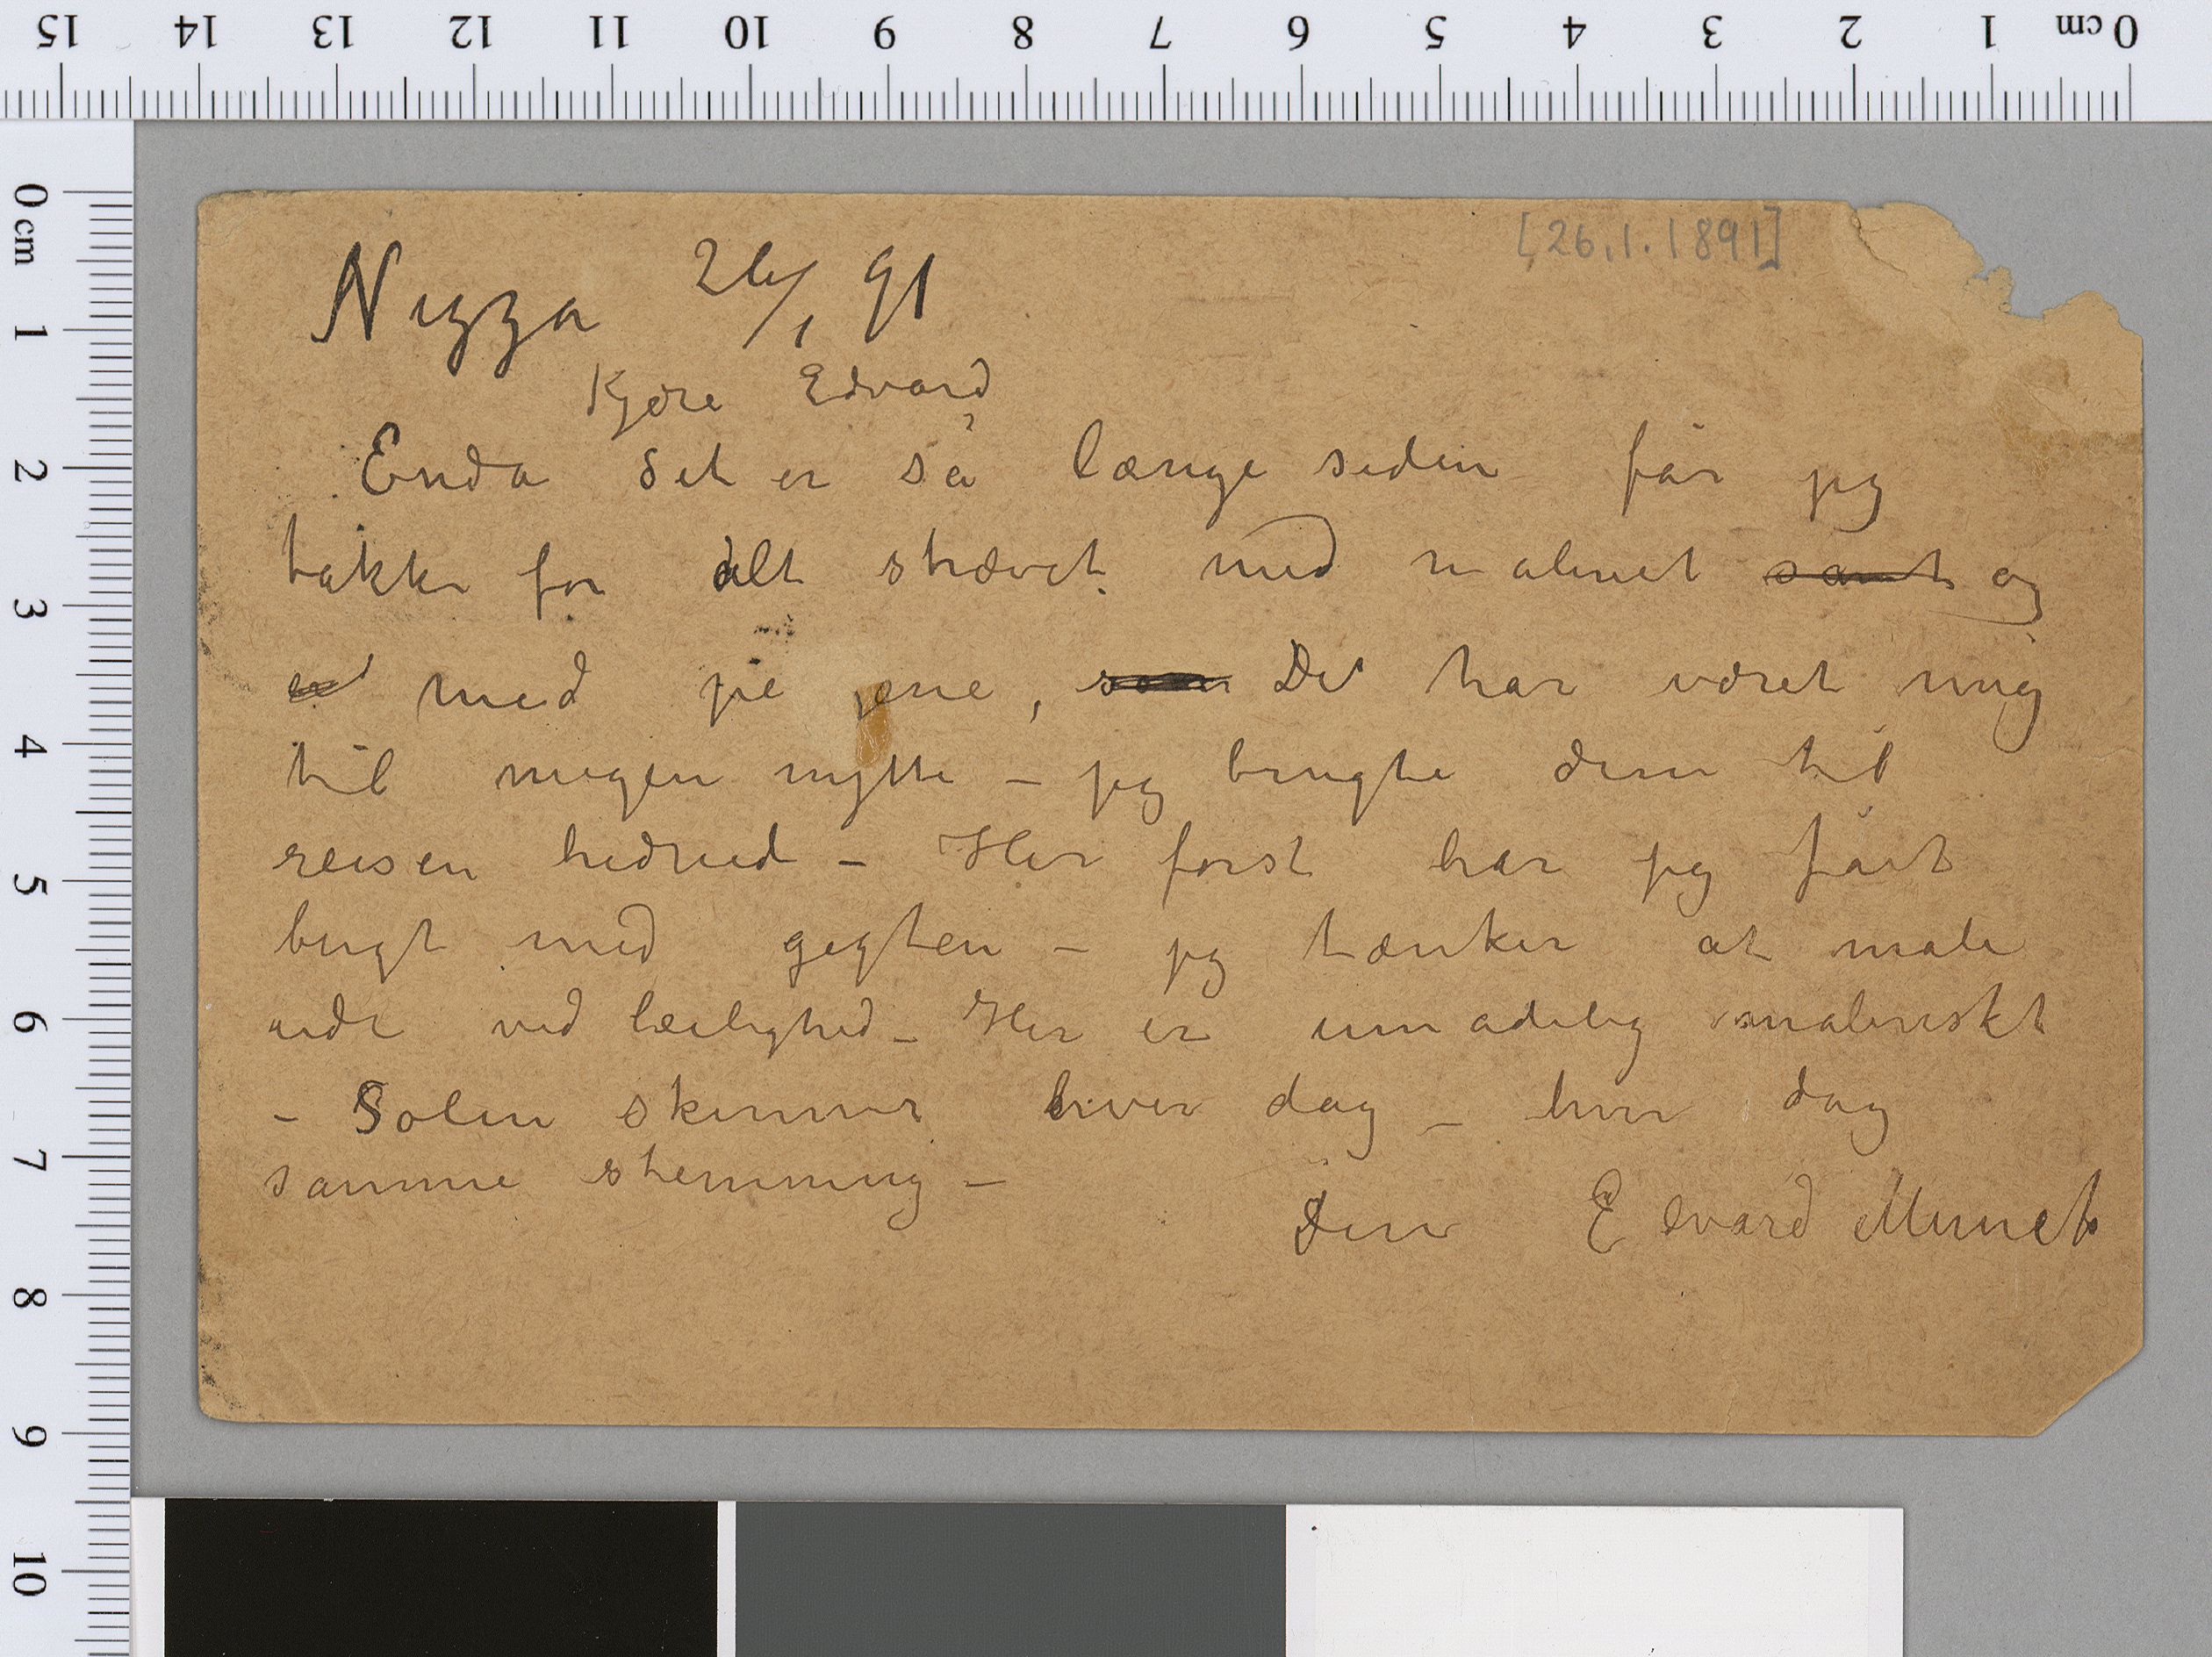 15 14 13 12 11 10 9 8 7 6 5 4 3 2 1 0 cm
0 cm 1 2 3 4 5 6 7 8 9 10
[26.1.1891]
Nizza 26/1 91
Kjære Edvard
Enda det er så længe siden får jeg
takke for alt strævet med maleriet samt og
er med pengene, som De har været mig
til megen nytte – jeg brugte dem til
reisen hedned – Her først har jeg fåt
bugt med gigten – jeg tænker at male
ude ved leilighed – Her er umådelig malerisk
– Solen skinner hver dag – hver dag
samme stemning –
Din Edvard Munch